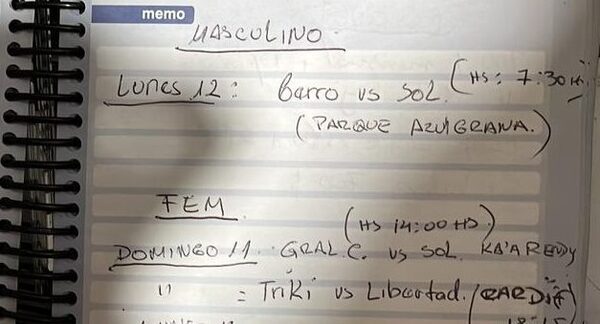 memo
MASCULINO.
LUNES 12: Barro vs SOL. (HS: 7:30H.
(PARQUE AZULGRANA.)
FEM
(HS 14:00 HS)
DOMINGO 11. GRAL.C. vs SOL. KA'ARENDY
" = TriKi vs Libertad.